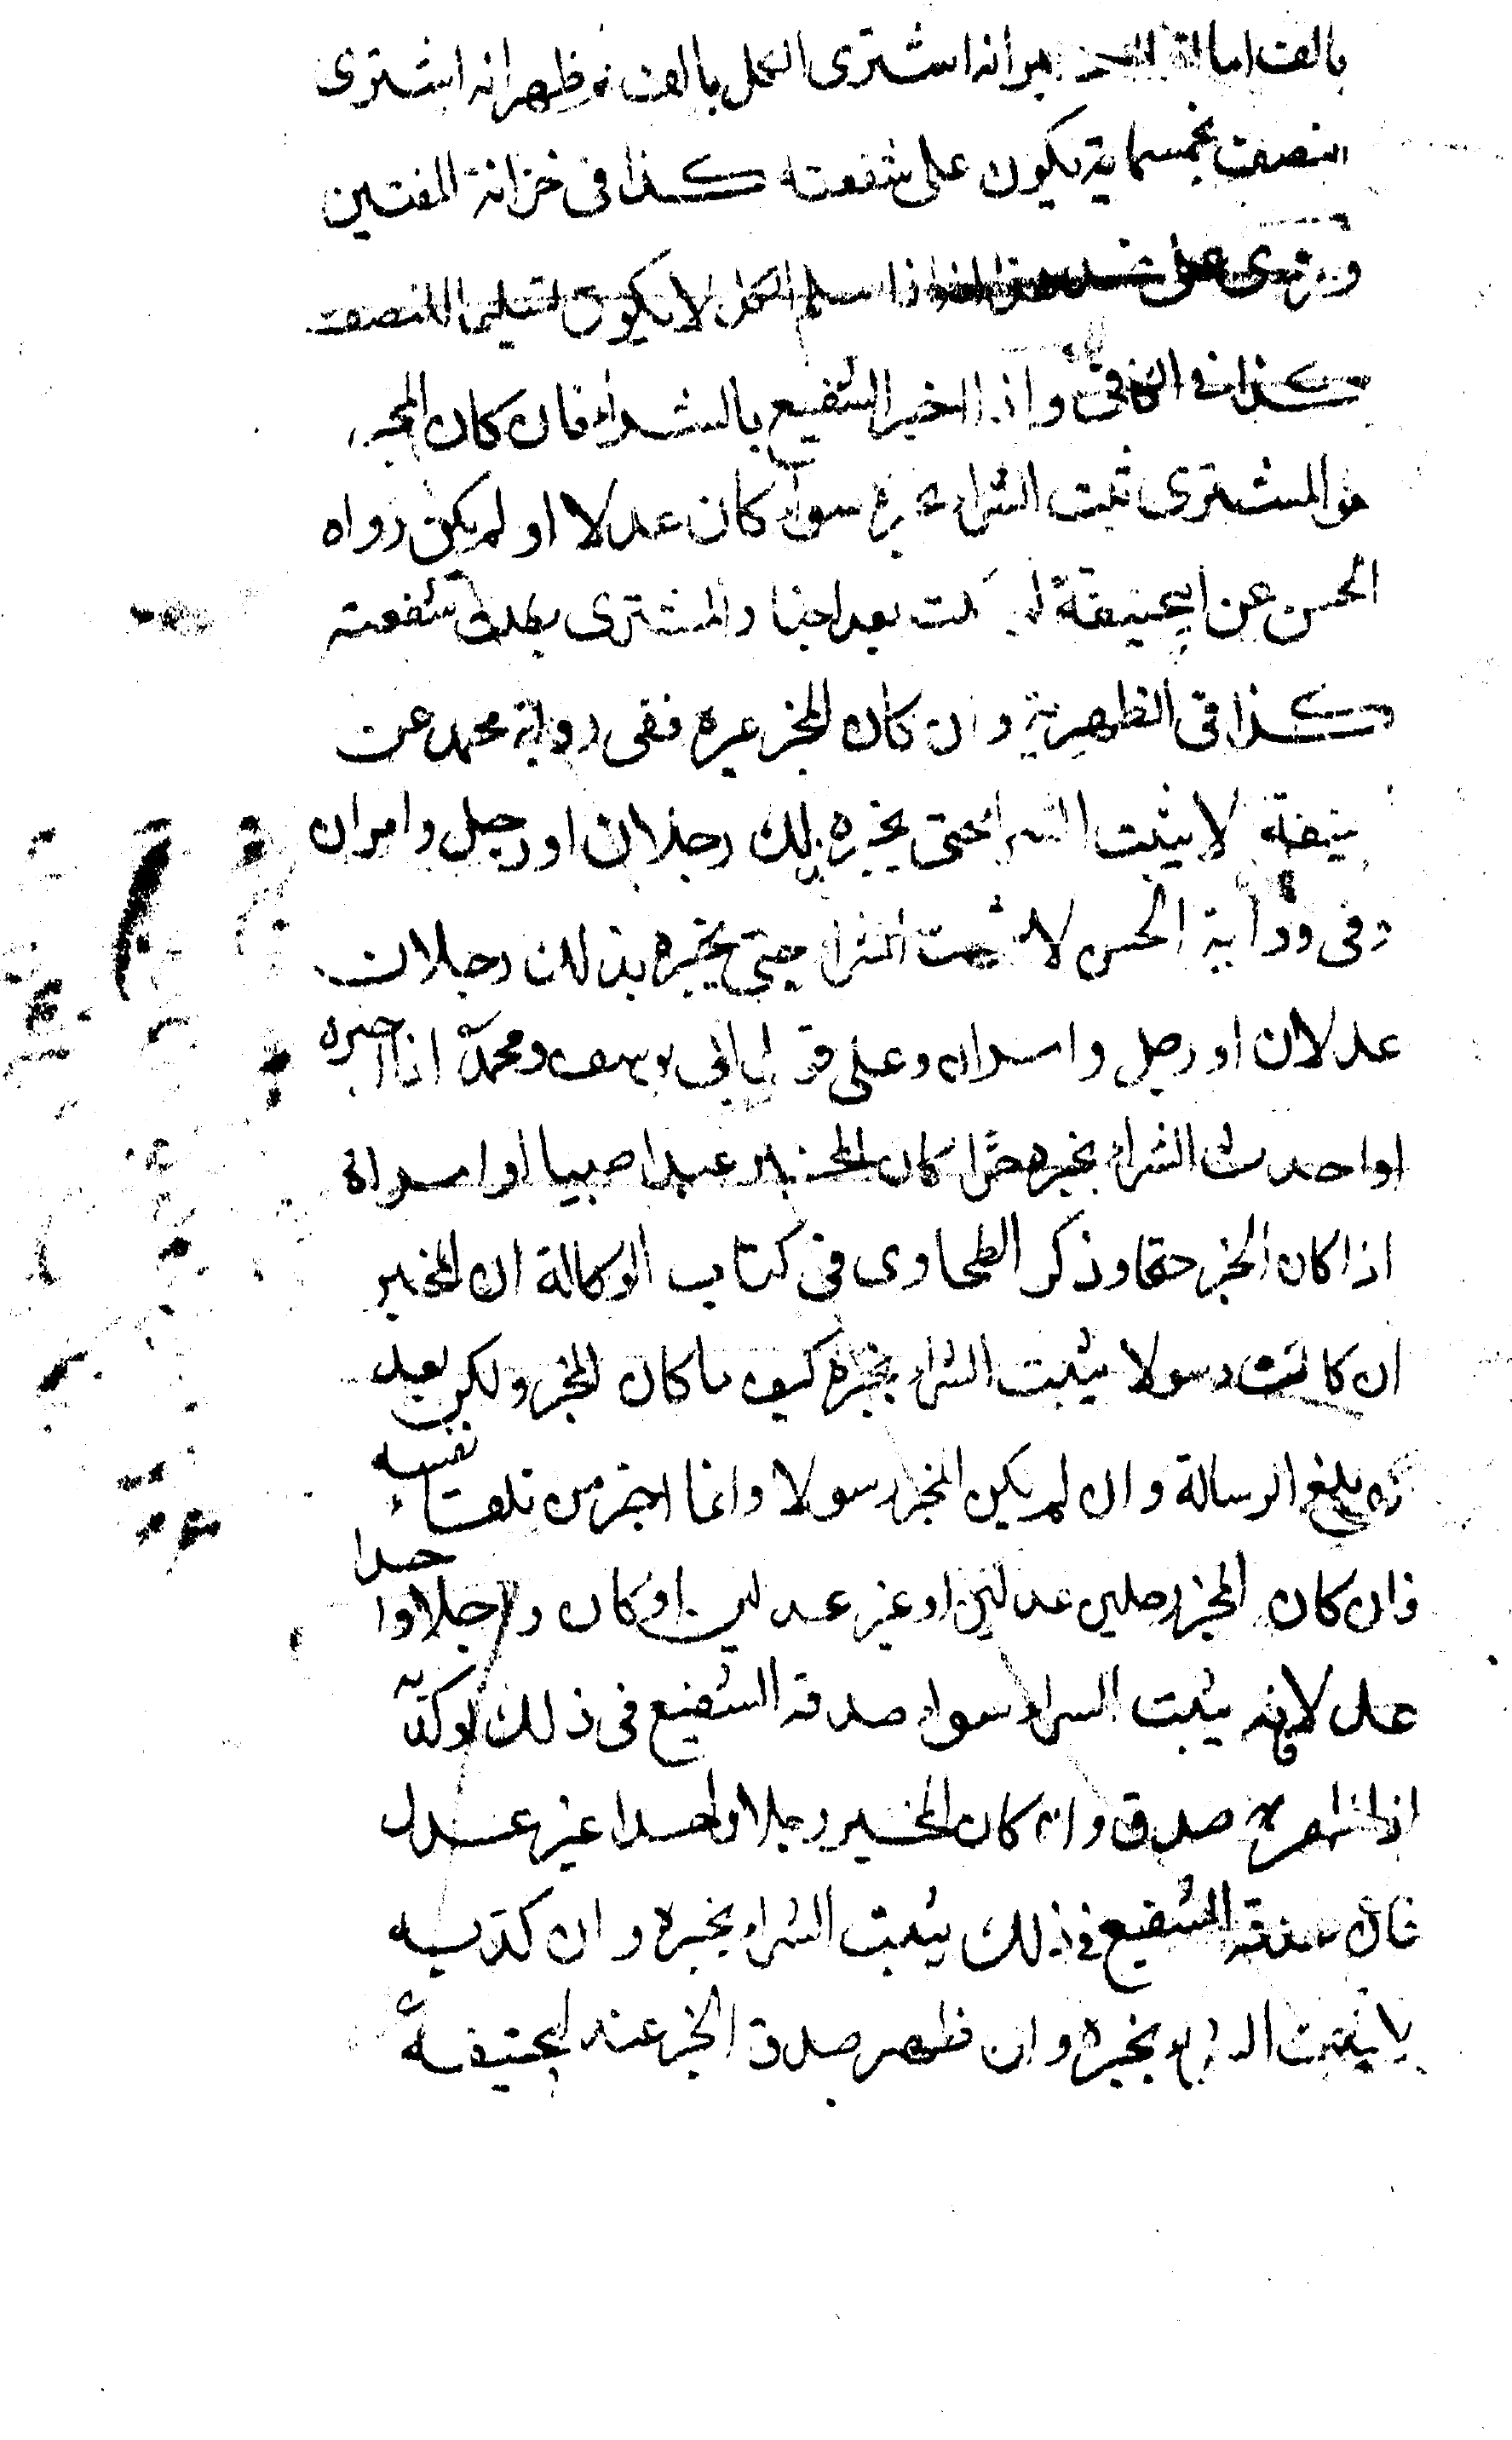 بالف اما لو اخبر انه اشترى الكل بالف فظهر انه اشترى
النصف بخمسماية يكون على شفعته كذا فى خزانة المفتين
اذا سلم الكل لا يكون تسليما للنصف
كذا فى الكافى واذا اخبر الشفيع بالشراء فان كان المخبر
هو المشترى ثبت الشراء بخبره سواء كان عدلا او لم يكن رواه
الحسن عن ابيحنيفة بعد اخبار المشترى بطلت شفعته
كذا فى الظهيرية وان كان المخبر غيره ففى رواية محمد عن
حنيفة لا يثبت الشراء حتى يخبره بذلك رجلان او رجل وامراتان
وفى رواية الحسن لا يثبت الشراء حتى يخبره بذلك رجلان
عدلان او رجل وامراتان وعلى قول ابى يوسف ومحمد اذا اخبره
واحد ثبت الشراء بخبره حرا كان المخبر او عبدا صبيا او امراة
اذا كان الخبر حقا وذكر الطحاوى فى كتاب الوكالة ان المخبر
ان كانت رسولا يثبت الشراء بخبره كيف ما كان المخبر ولكن بعد
ان يبلغ الرسالة وان لم يكن المخبر رسولا وانما اخبر من تلقاء نفسه
فان كان المخبر رجلين عدلين او غير عدلين او كان رجلا واحدا
عدلا فانه يثبت الشراء سواء صدقه الشفيع فى ذلك او كذبه
اذا ظهر صدق وان كان المخبر رجلا واحدا غير عدل
فان صدقه الشفيع فى ذلك يثبت الشراء بخبره وان كذبه
لا يثبت الشراء بخبره وان ظهر صدق الخبر عند ابيحنيفة